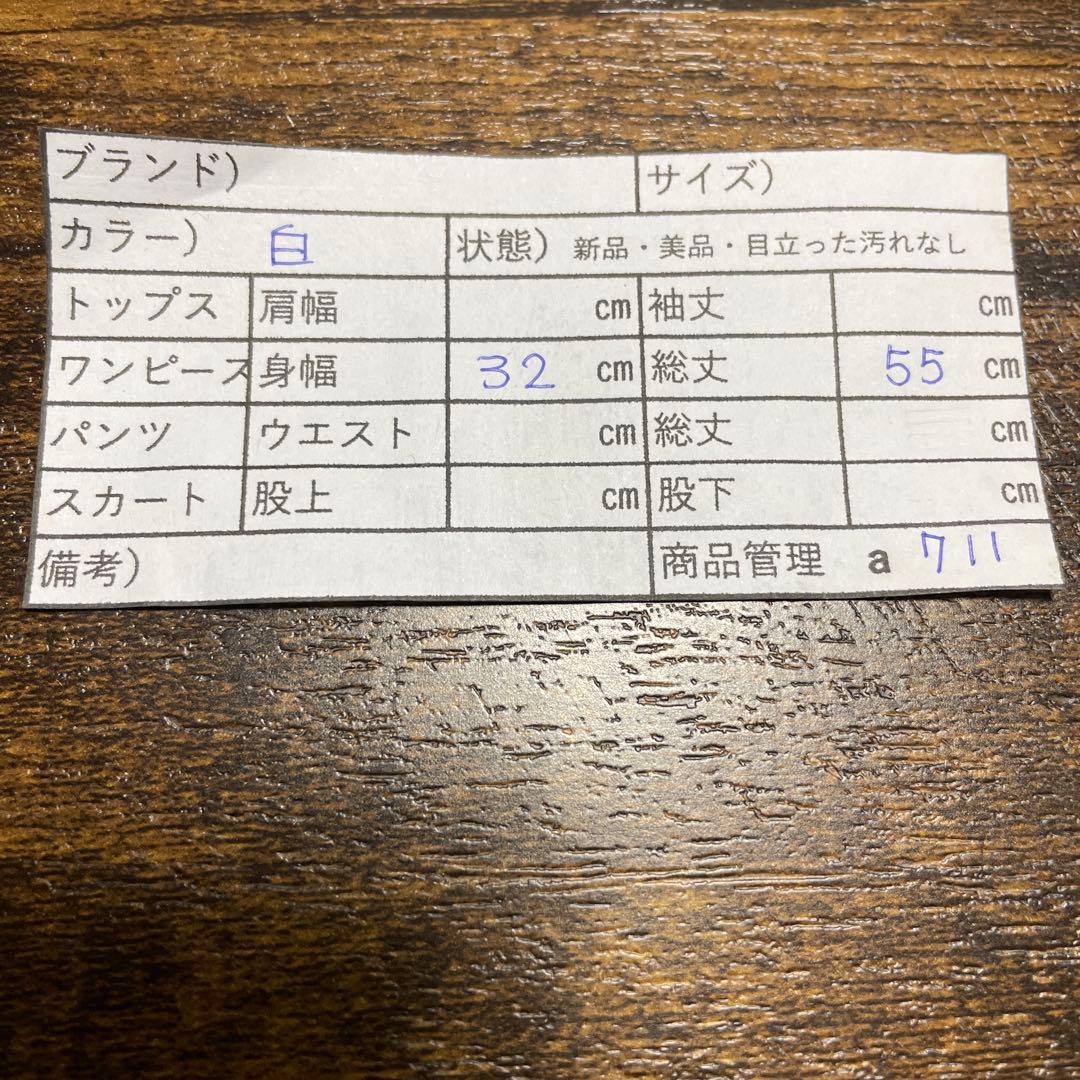 ブランド) サイズ)
カラー) 白 状態) 新品・美品・目立った汚れなし
トップス 肩幅 cm 袖丈 cm
ワンピース 身幅 32 cm 総丈 55 cm
パンツ ウエスト cm 総丈 cm
スカート 股上 cm 股下 cm
備考) 商品管理 a 711